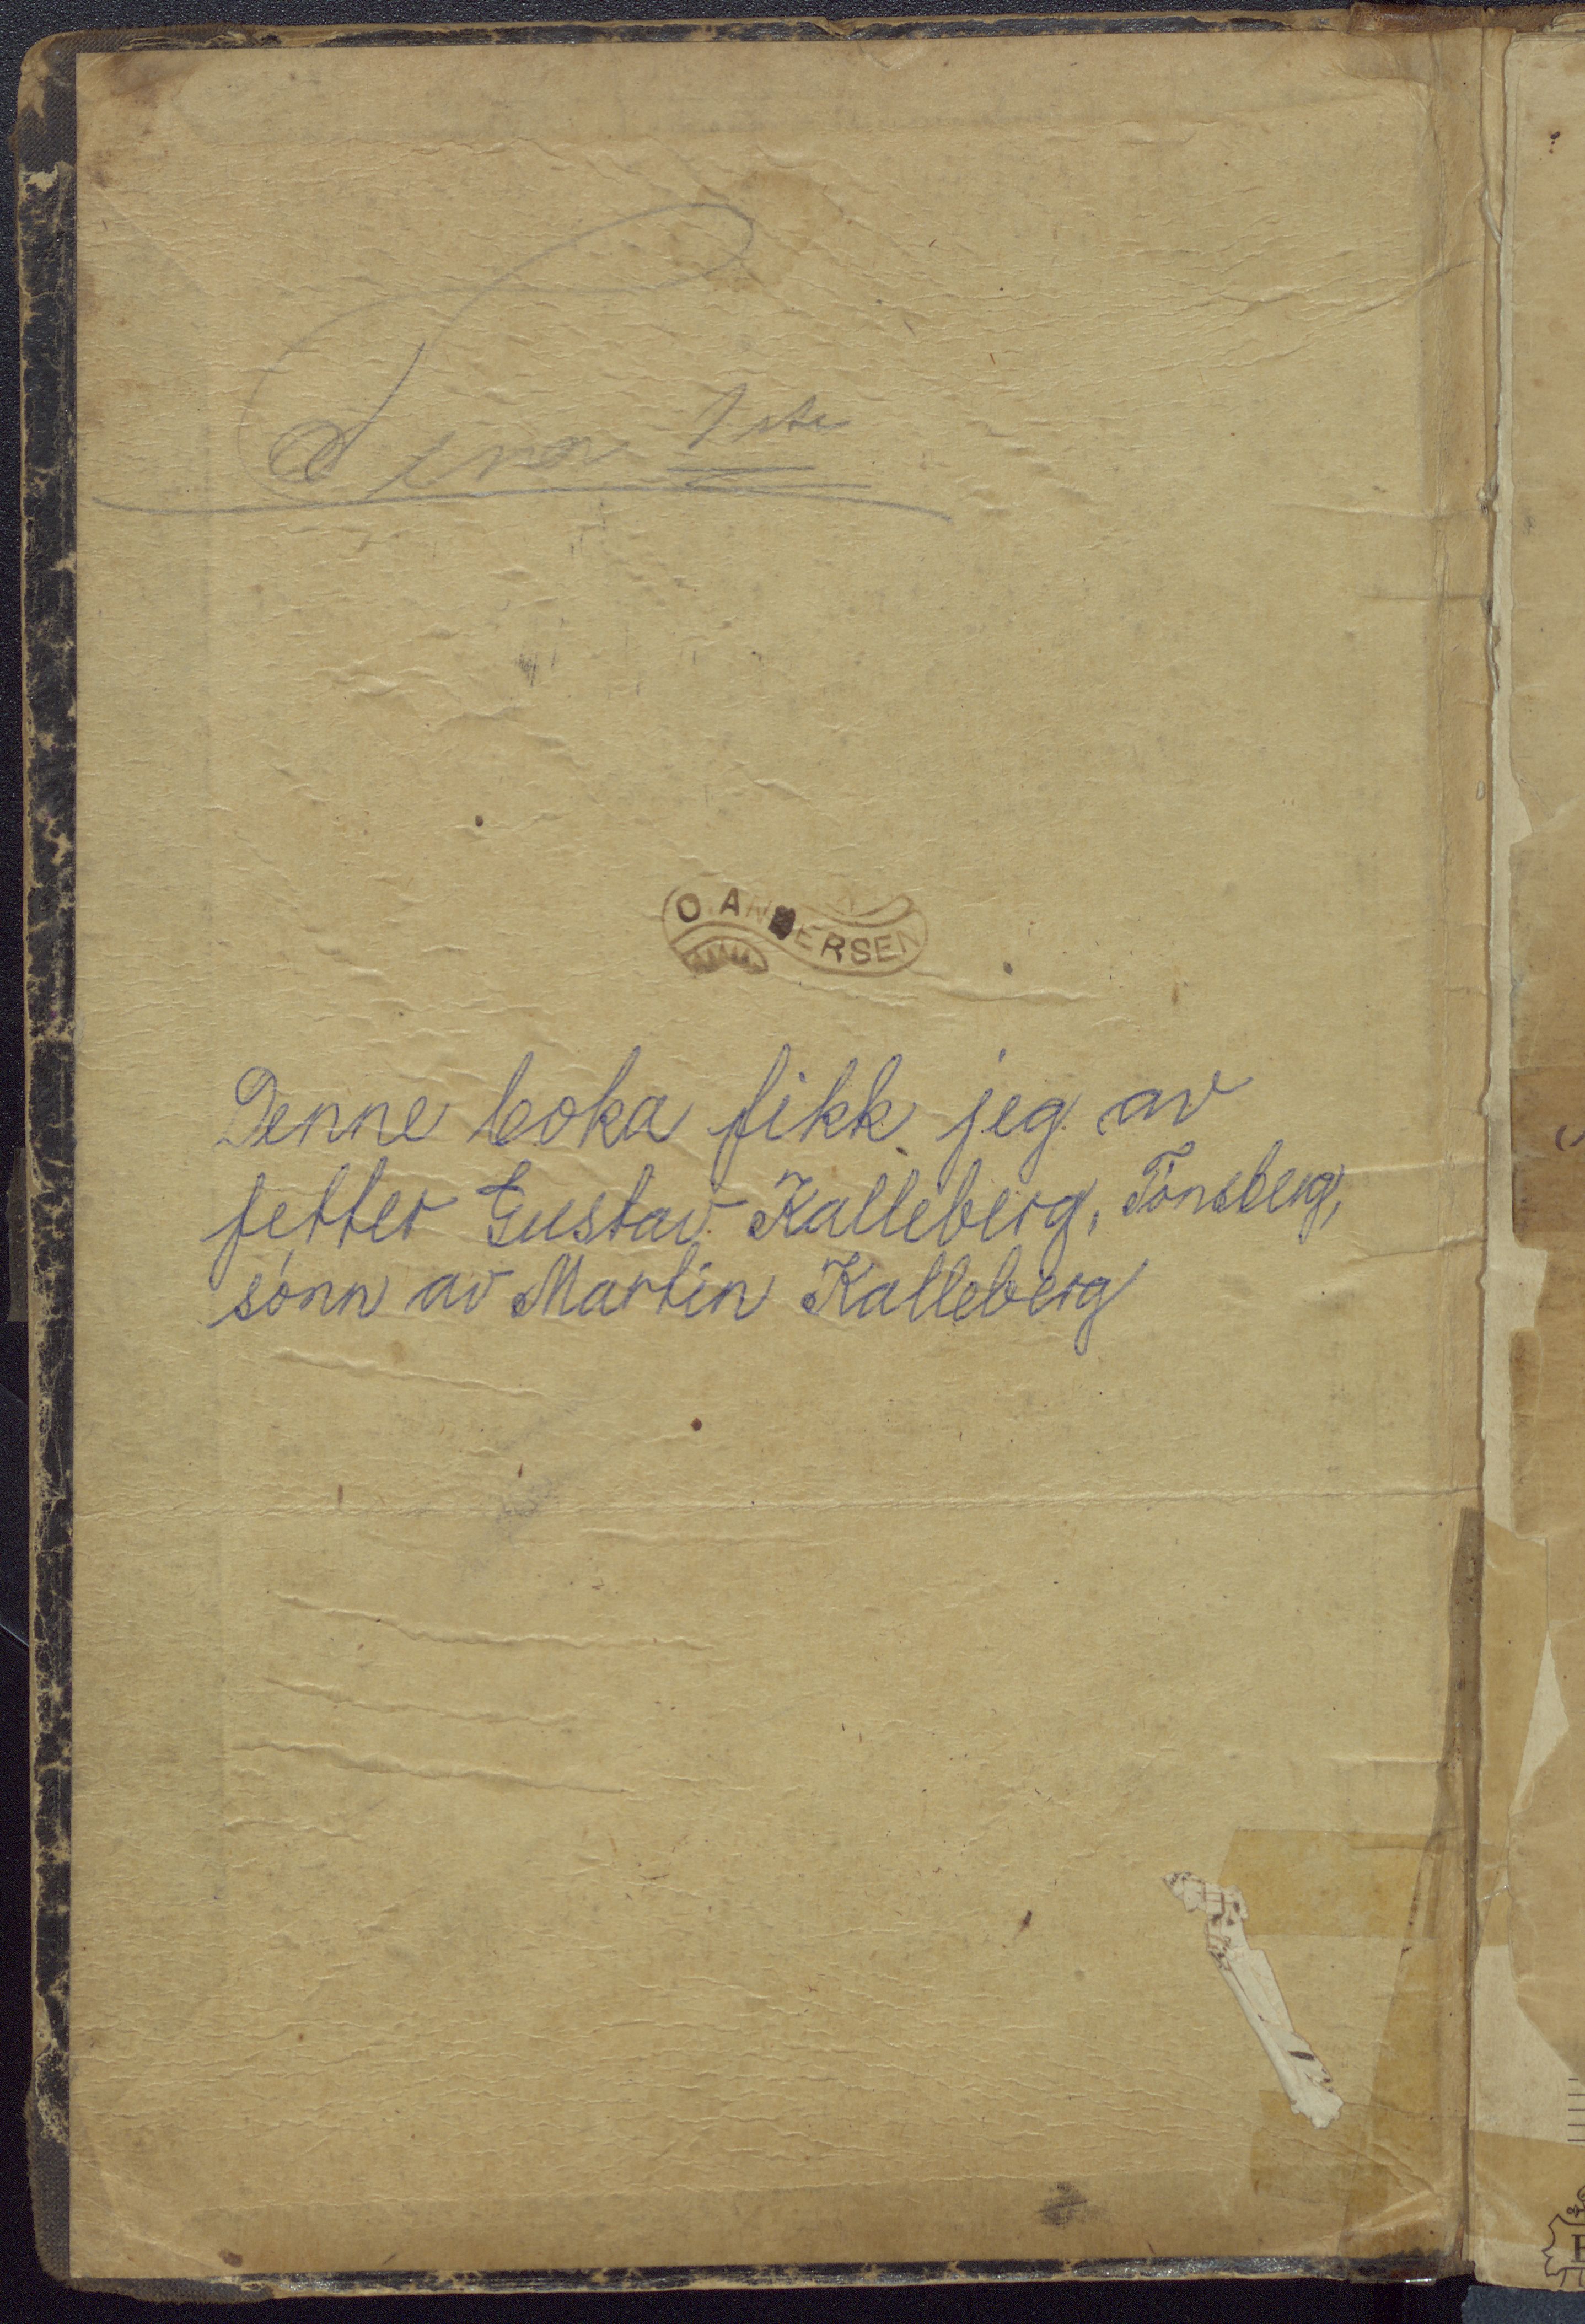 1ste
O. ANDERSEN
Denne boka fikk jeg av
fetter Gustav Kalleberg, Tønsberg,
sønn av Martin Kalleberg